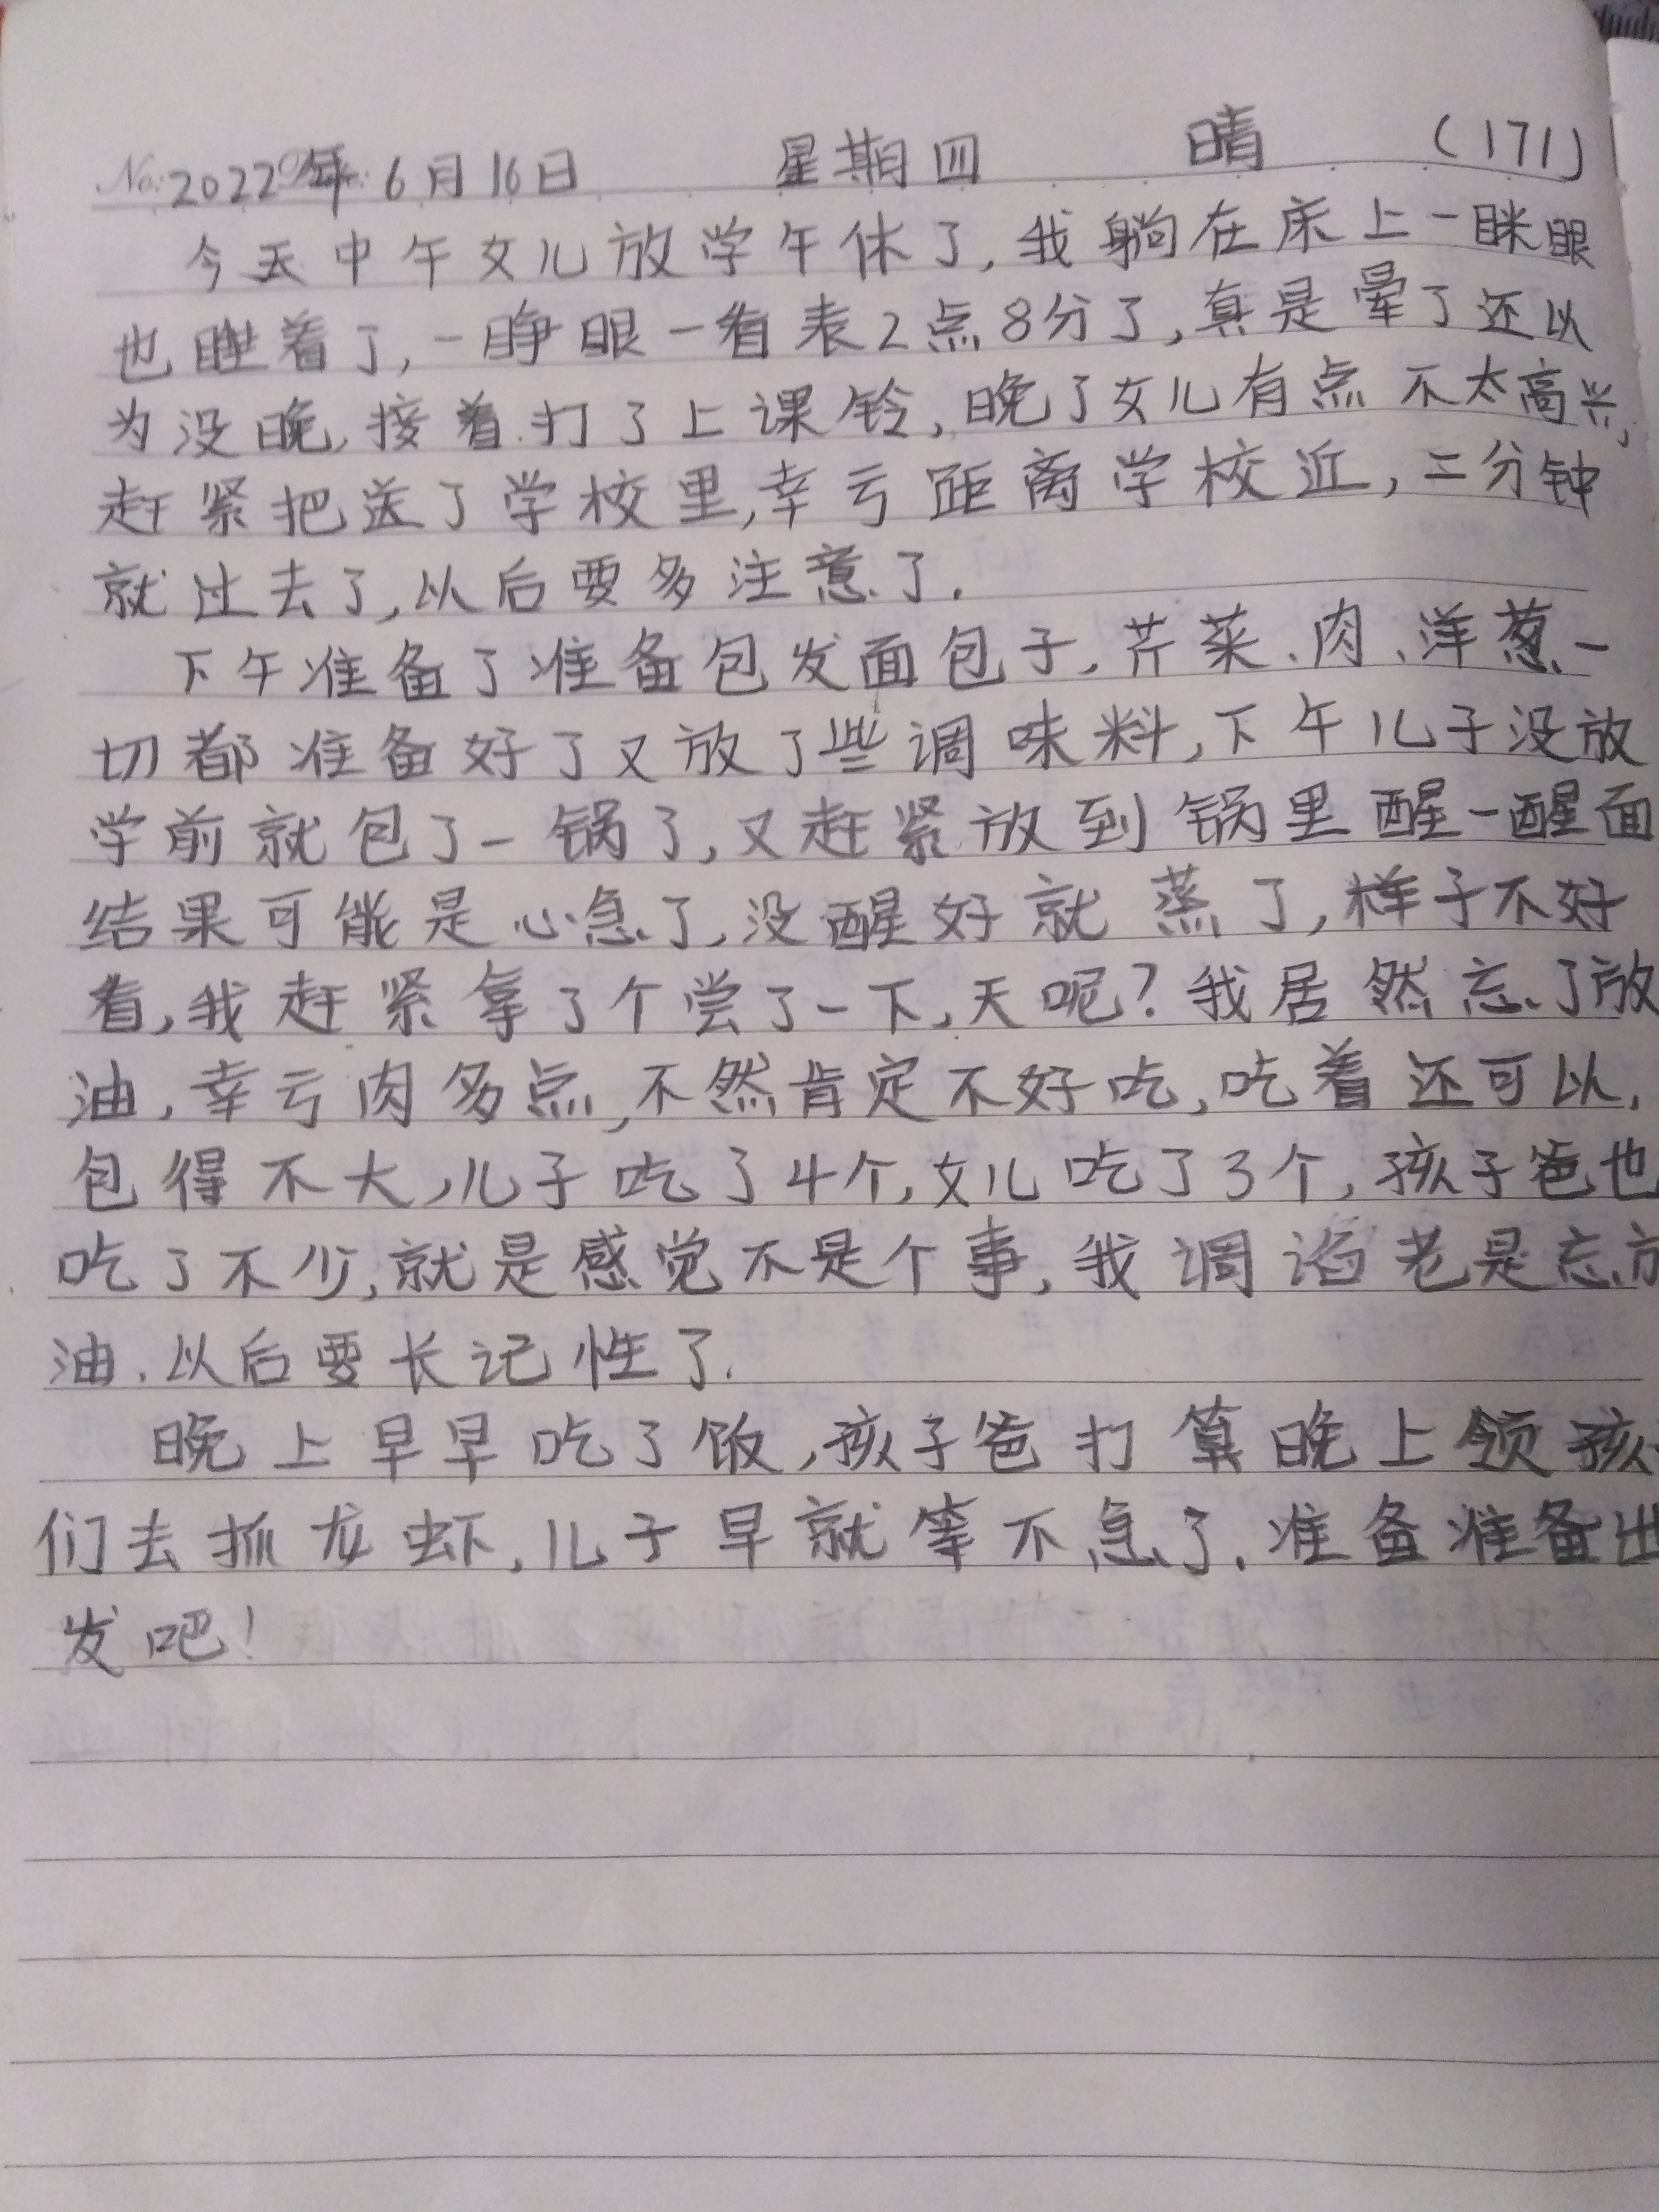 No. 2022年6月16日 星期四 晴 (171)
今天中午女儿放学午休了,我躺在床上一眯眼
也睡着了,一睁眼一看表2点8分了,真是晕了还以
为没晚,接着打了上课铃,晚了女儿有点不太高兴,
赶紧把送了学校里,幸亏距离学校近,二分钟
就过去了,以后要多注意了.
下午准备了准备包发面包子,芹菜、肉、洋葱、一
切都准备好了又放了些调味料,下午儿子没放
学前就包了一锅了,又赶紧放到锅里醒一醒面
结果可能是心急了,没醒好就蒸了,样子不好
看,我赶紧拿了个尝了一下,天呢?我居然忘了放
油,幸亏肉多点,不然肯定不好吃,吃着还可以,
包得不大,儿子吃了4个,女儿吃了3个,孩子爸也
吃了不少,就是感觉不是个事,我调谄老是忘
油.以后要长记性了.
晚上早早吃了饭,孩子爸打算晚上领孩
们去抓龙虾,儿子早就等不急了.准备准备出
发吧!